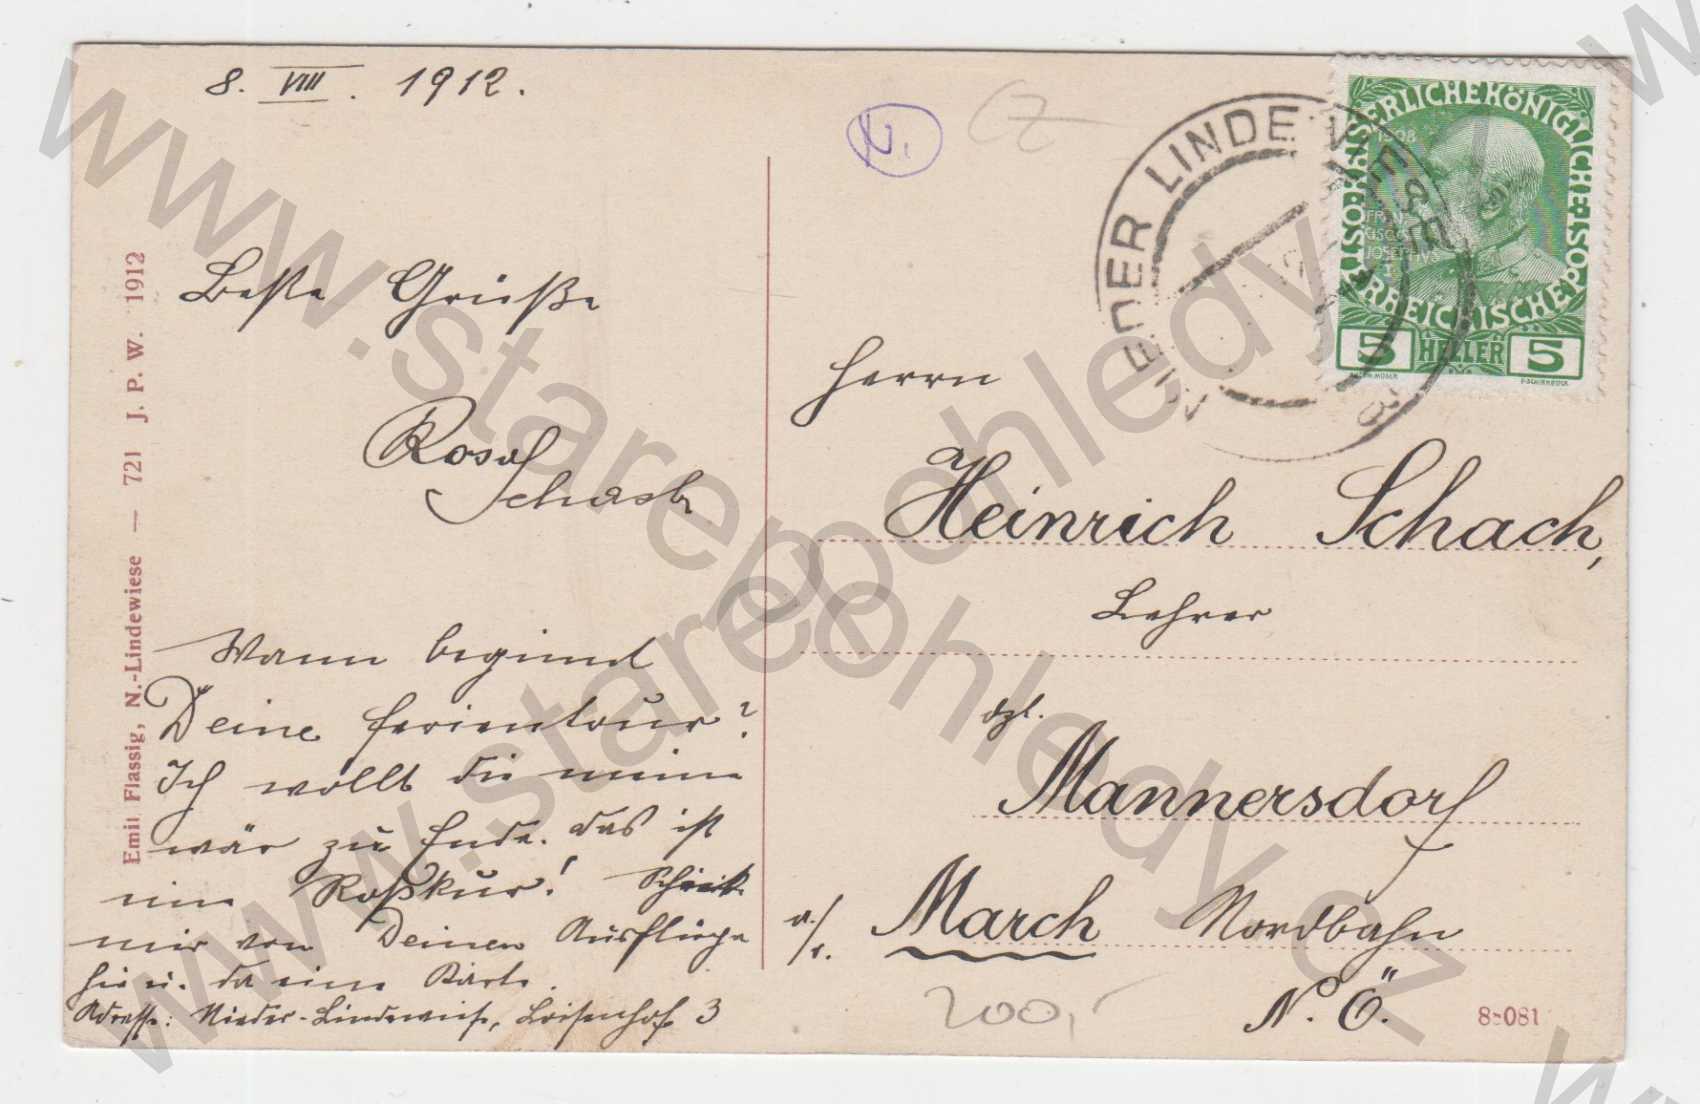 8. VIII. 1912.
Beste Grüße
Rosa
Schach
Wann beginnt
Deine Ferientour?
Ich wollt die meine
wär zu Ende. Das ist
eine Roßkur! Schick
mir von Deinen Ausflüge
hie u. da eine Karte.
Adresse: Nieder-Lindewiese, Loisenhof 3
Emil Flassig, N.-Lindewiese — 721 J. P. W. 1912
NIEDER LINDEWIESE
KAISERLICHE KÖNIGLICHE
ÖSTERREICHISCHE POST
1908
FRAN
CISCVS
JOSEPHVS
I
5 HELLER 5
KOLO. MOSER
F. SCHIRNBÖCK
Herrn
Heinrich Schach,
Lehrer
dzt.
Mannersdorf
a./ March Nordbahn
N. Ö.
200,-
8-081
CZ
www.starepohledy.cz
www.starepohledy.cz